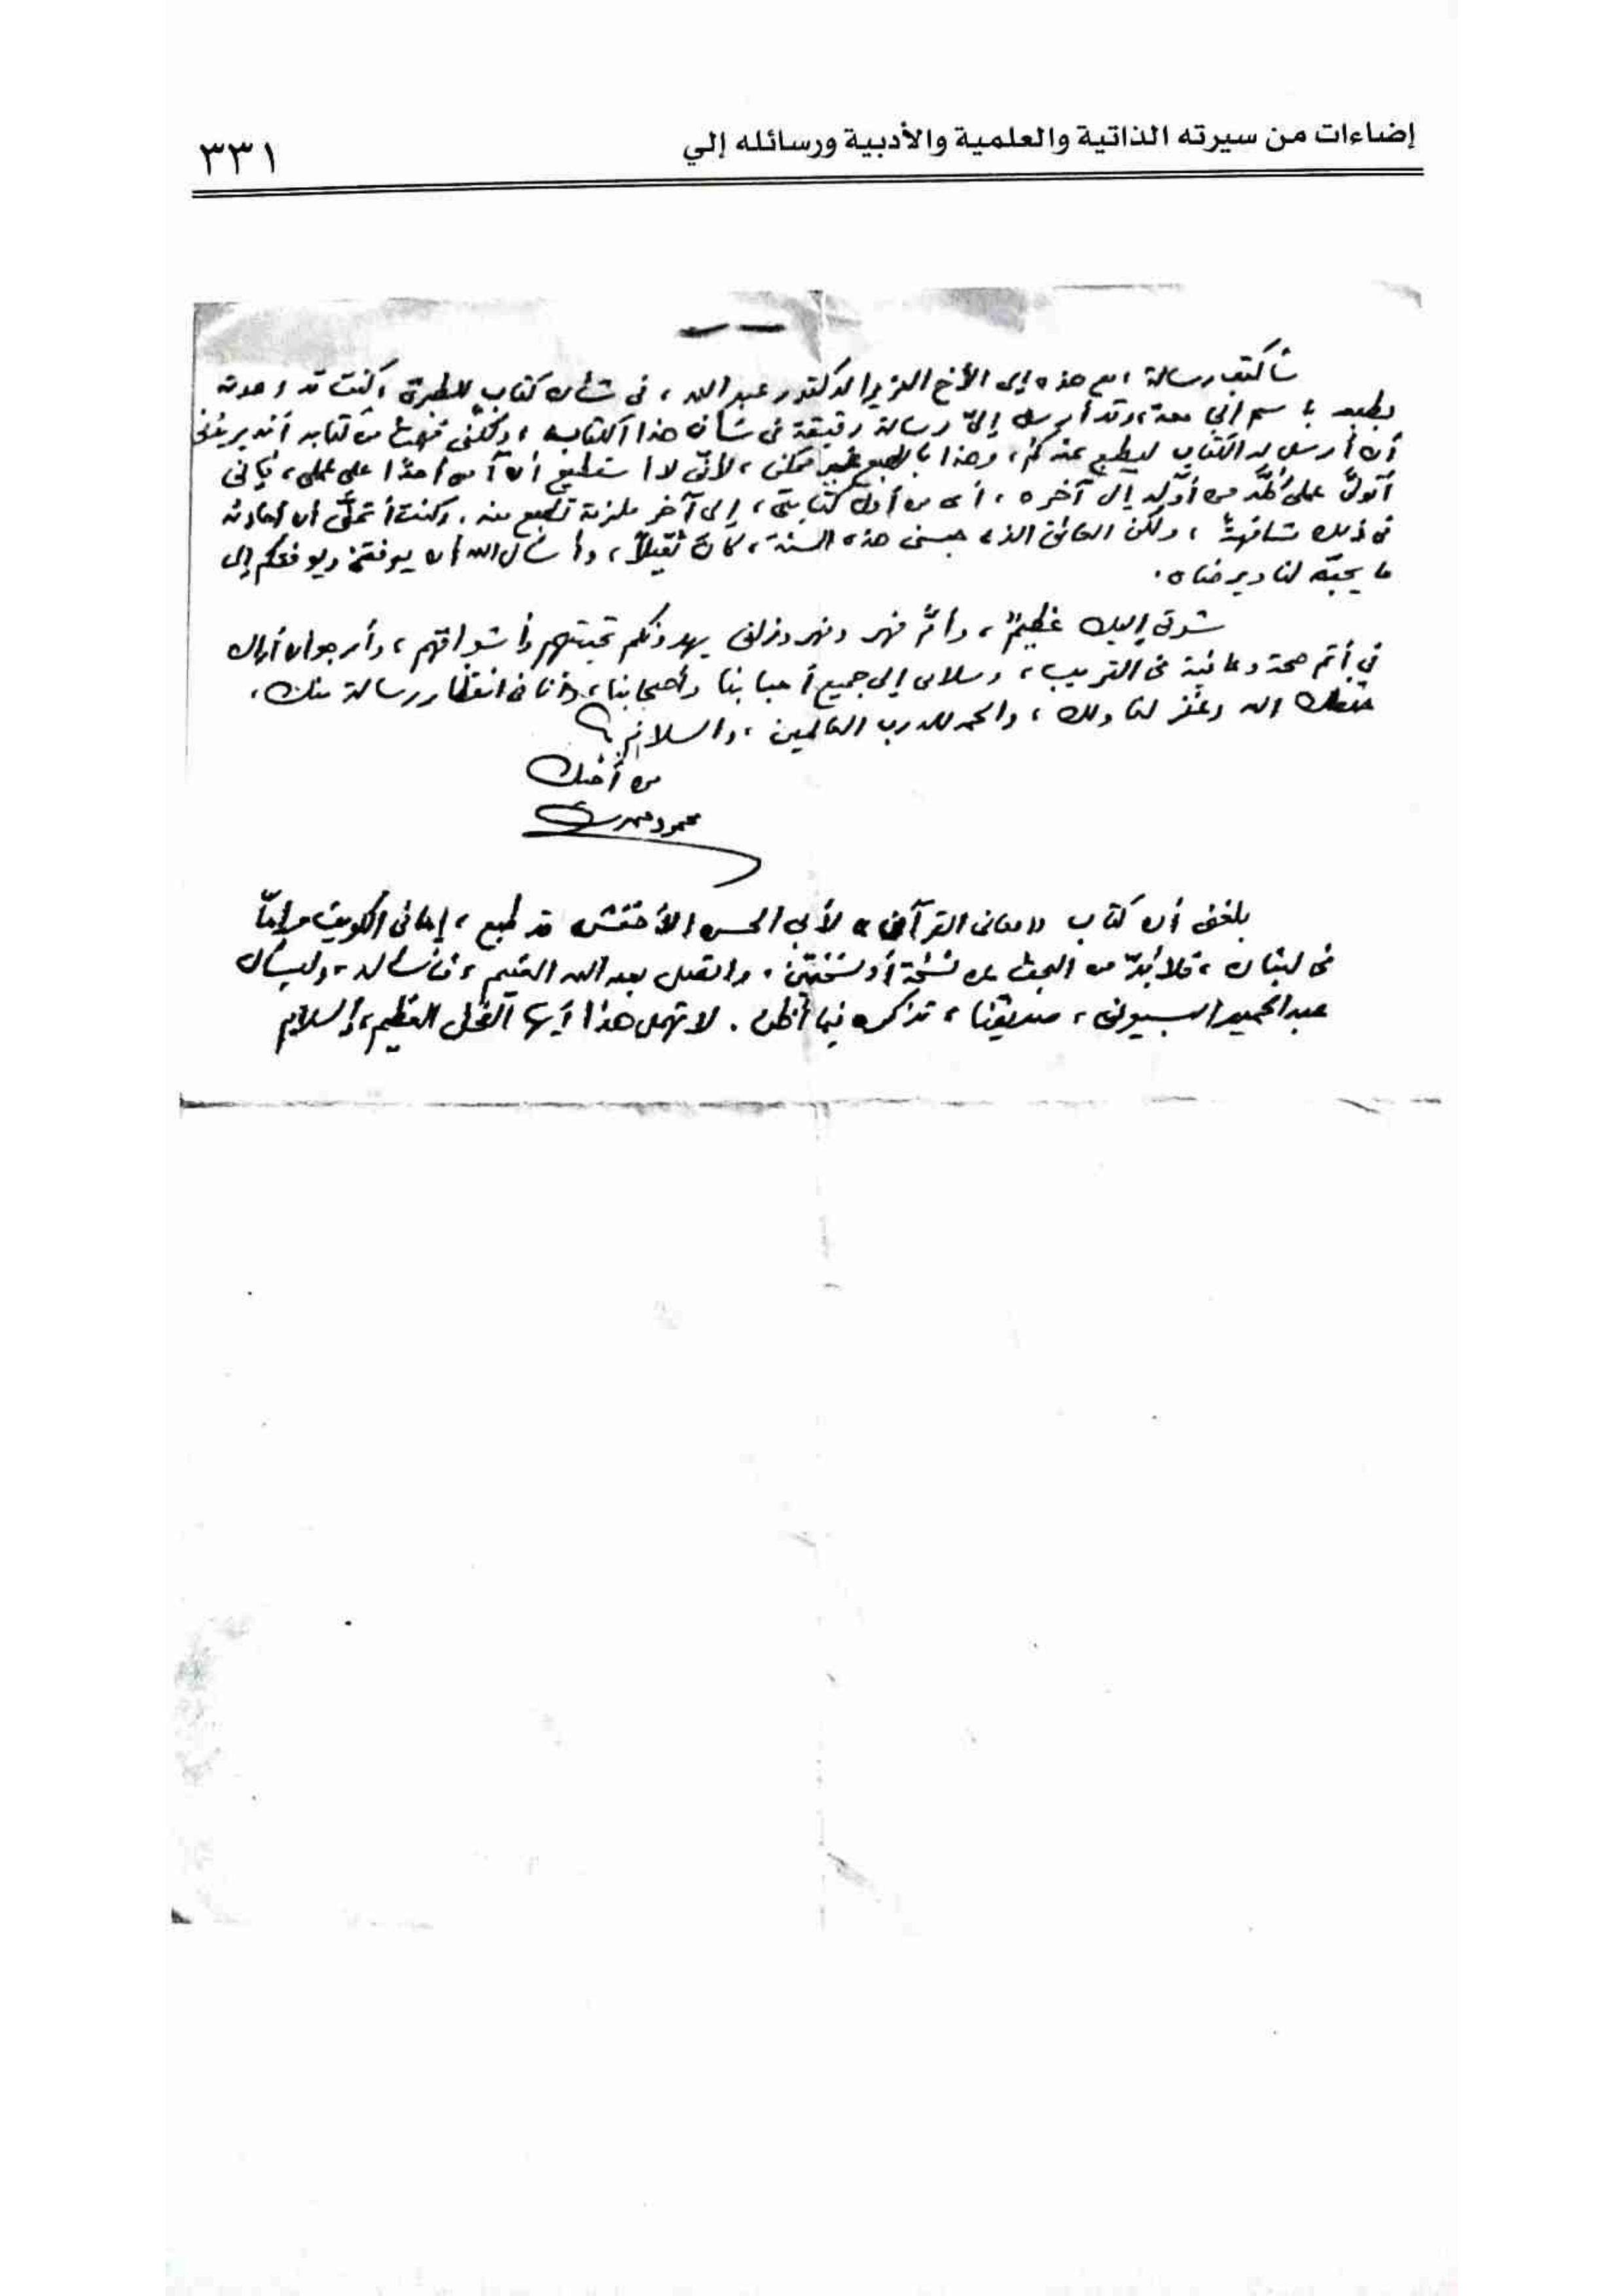 إضاءات من سيرته الذاتية والعلمية والأدبية ورسائله إلي
٣٣١
سأكتب رسالة مع هذه إلى الأخ العزيز الدكتور عبد الله، في شأن كتاب للطبري، كنت قد وعدته
بطبعه باسم وقد أرسل إليّ رسالة رقيقة في شأن هذا الكتاب، ولكني فهمت من كتابه أنه يريدني
أن أرسل له الكتاب ليطبع عندكم، وهذا بالطبع غير ممكن، لأنّي لا أستطيع أن آمن أحدًا على عملي، فإني
أتولّى عملي كلَّه من أوّله إلى آخره، أي من أول كتابتي، إلى آخر ملزمة تطبع منه. وكنت أتمنّى أن أحادثه
في ذلك مشافهةً، ولكن العائق الذي حبسني هذه السنة، كان ثقيلاً، وأسأل الله أن يوفقني ويوفقكم إلى
ما يحبّه لنا ويرضاه.
شوقي إليك عظيمٌ، وأمُّ فهر وفهر وزلفى يهدونكم تحيتهم وأشواقهم، وأرجو أن أراك
في أتم صحة وعافية في القريب، وسلامي إلى جميع أحبابنا وأصحابنا، وأنا في انتظار رسالة منك،
حفظك الله وغفر لنا ولك، والحمد لله رب العالمين، والسلام
من أخيك
محمود محمد شاكر
بلغني أن كتاب «معاني القرآن» لأبي الحسن الأخفش قد طبع، إما في الكويت وإمّا
في لبنان، فلا بُدّ من البحث عن نسخة أو نسختين، واتصل بعبد الله الغنيم، فاسأله، وليسأل
عبد الحميد البسيوني، صديقنا، تذاكره فيما أظن. لا تهمل هذا أيها الفحل العظيم، والسلام